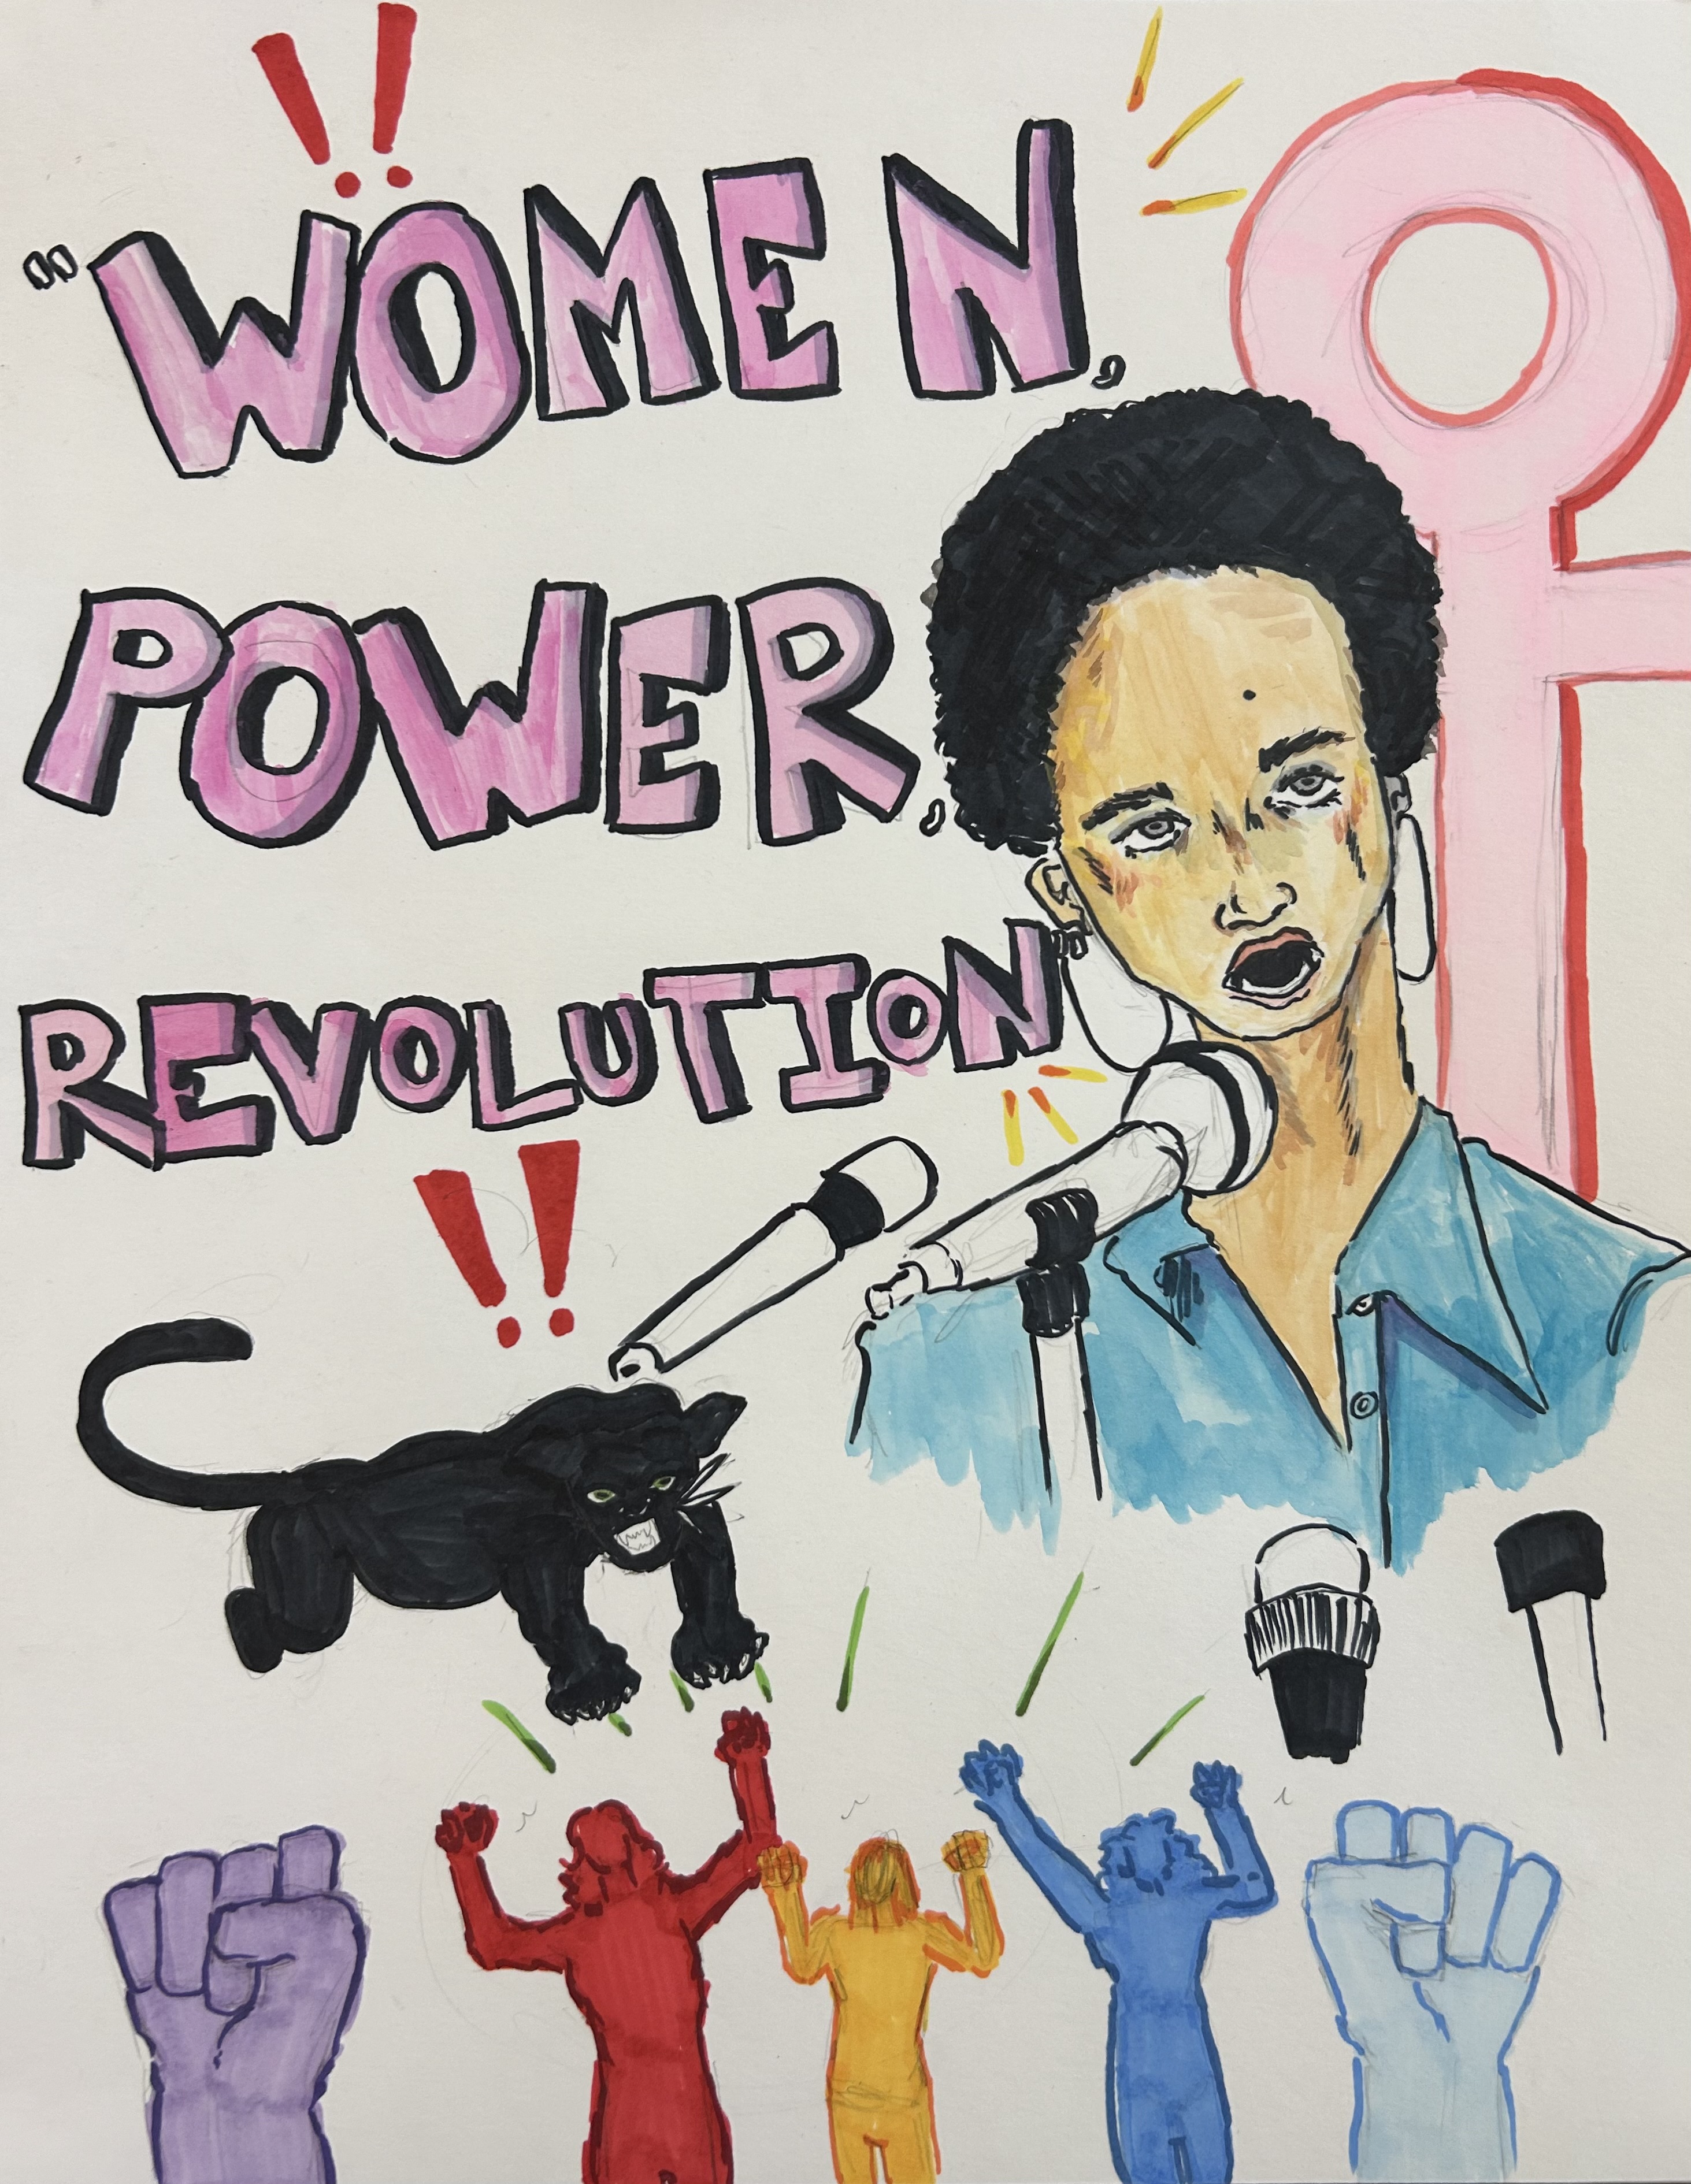 !!
"WOMEN,
POWER,
REVOLUTION"
!!